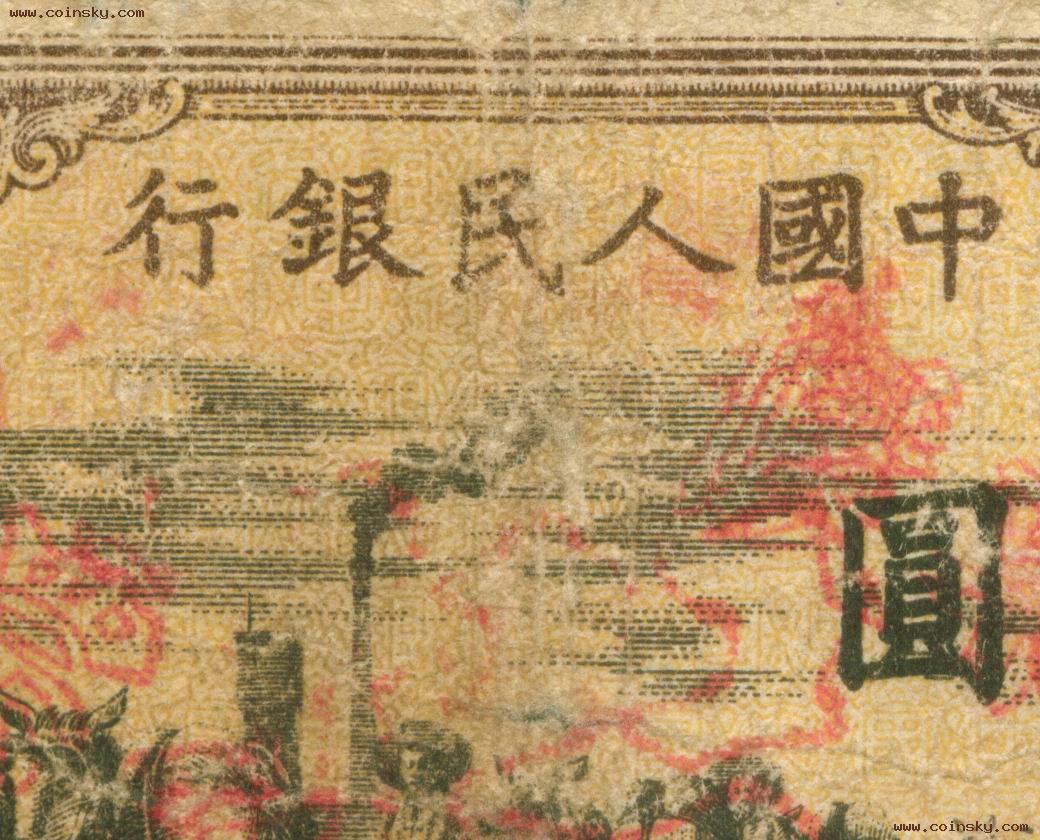 www.coinsky.com
中國人民銀行
圓
www.coinsky.com